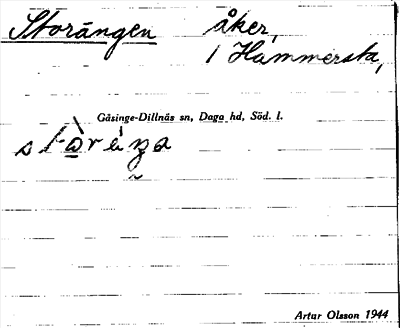 Storängen åker,
/ Hammersta,
Gåsinge-Dillnäs sn, Daga hd, Söd. l.
Artur Olsson 1944